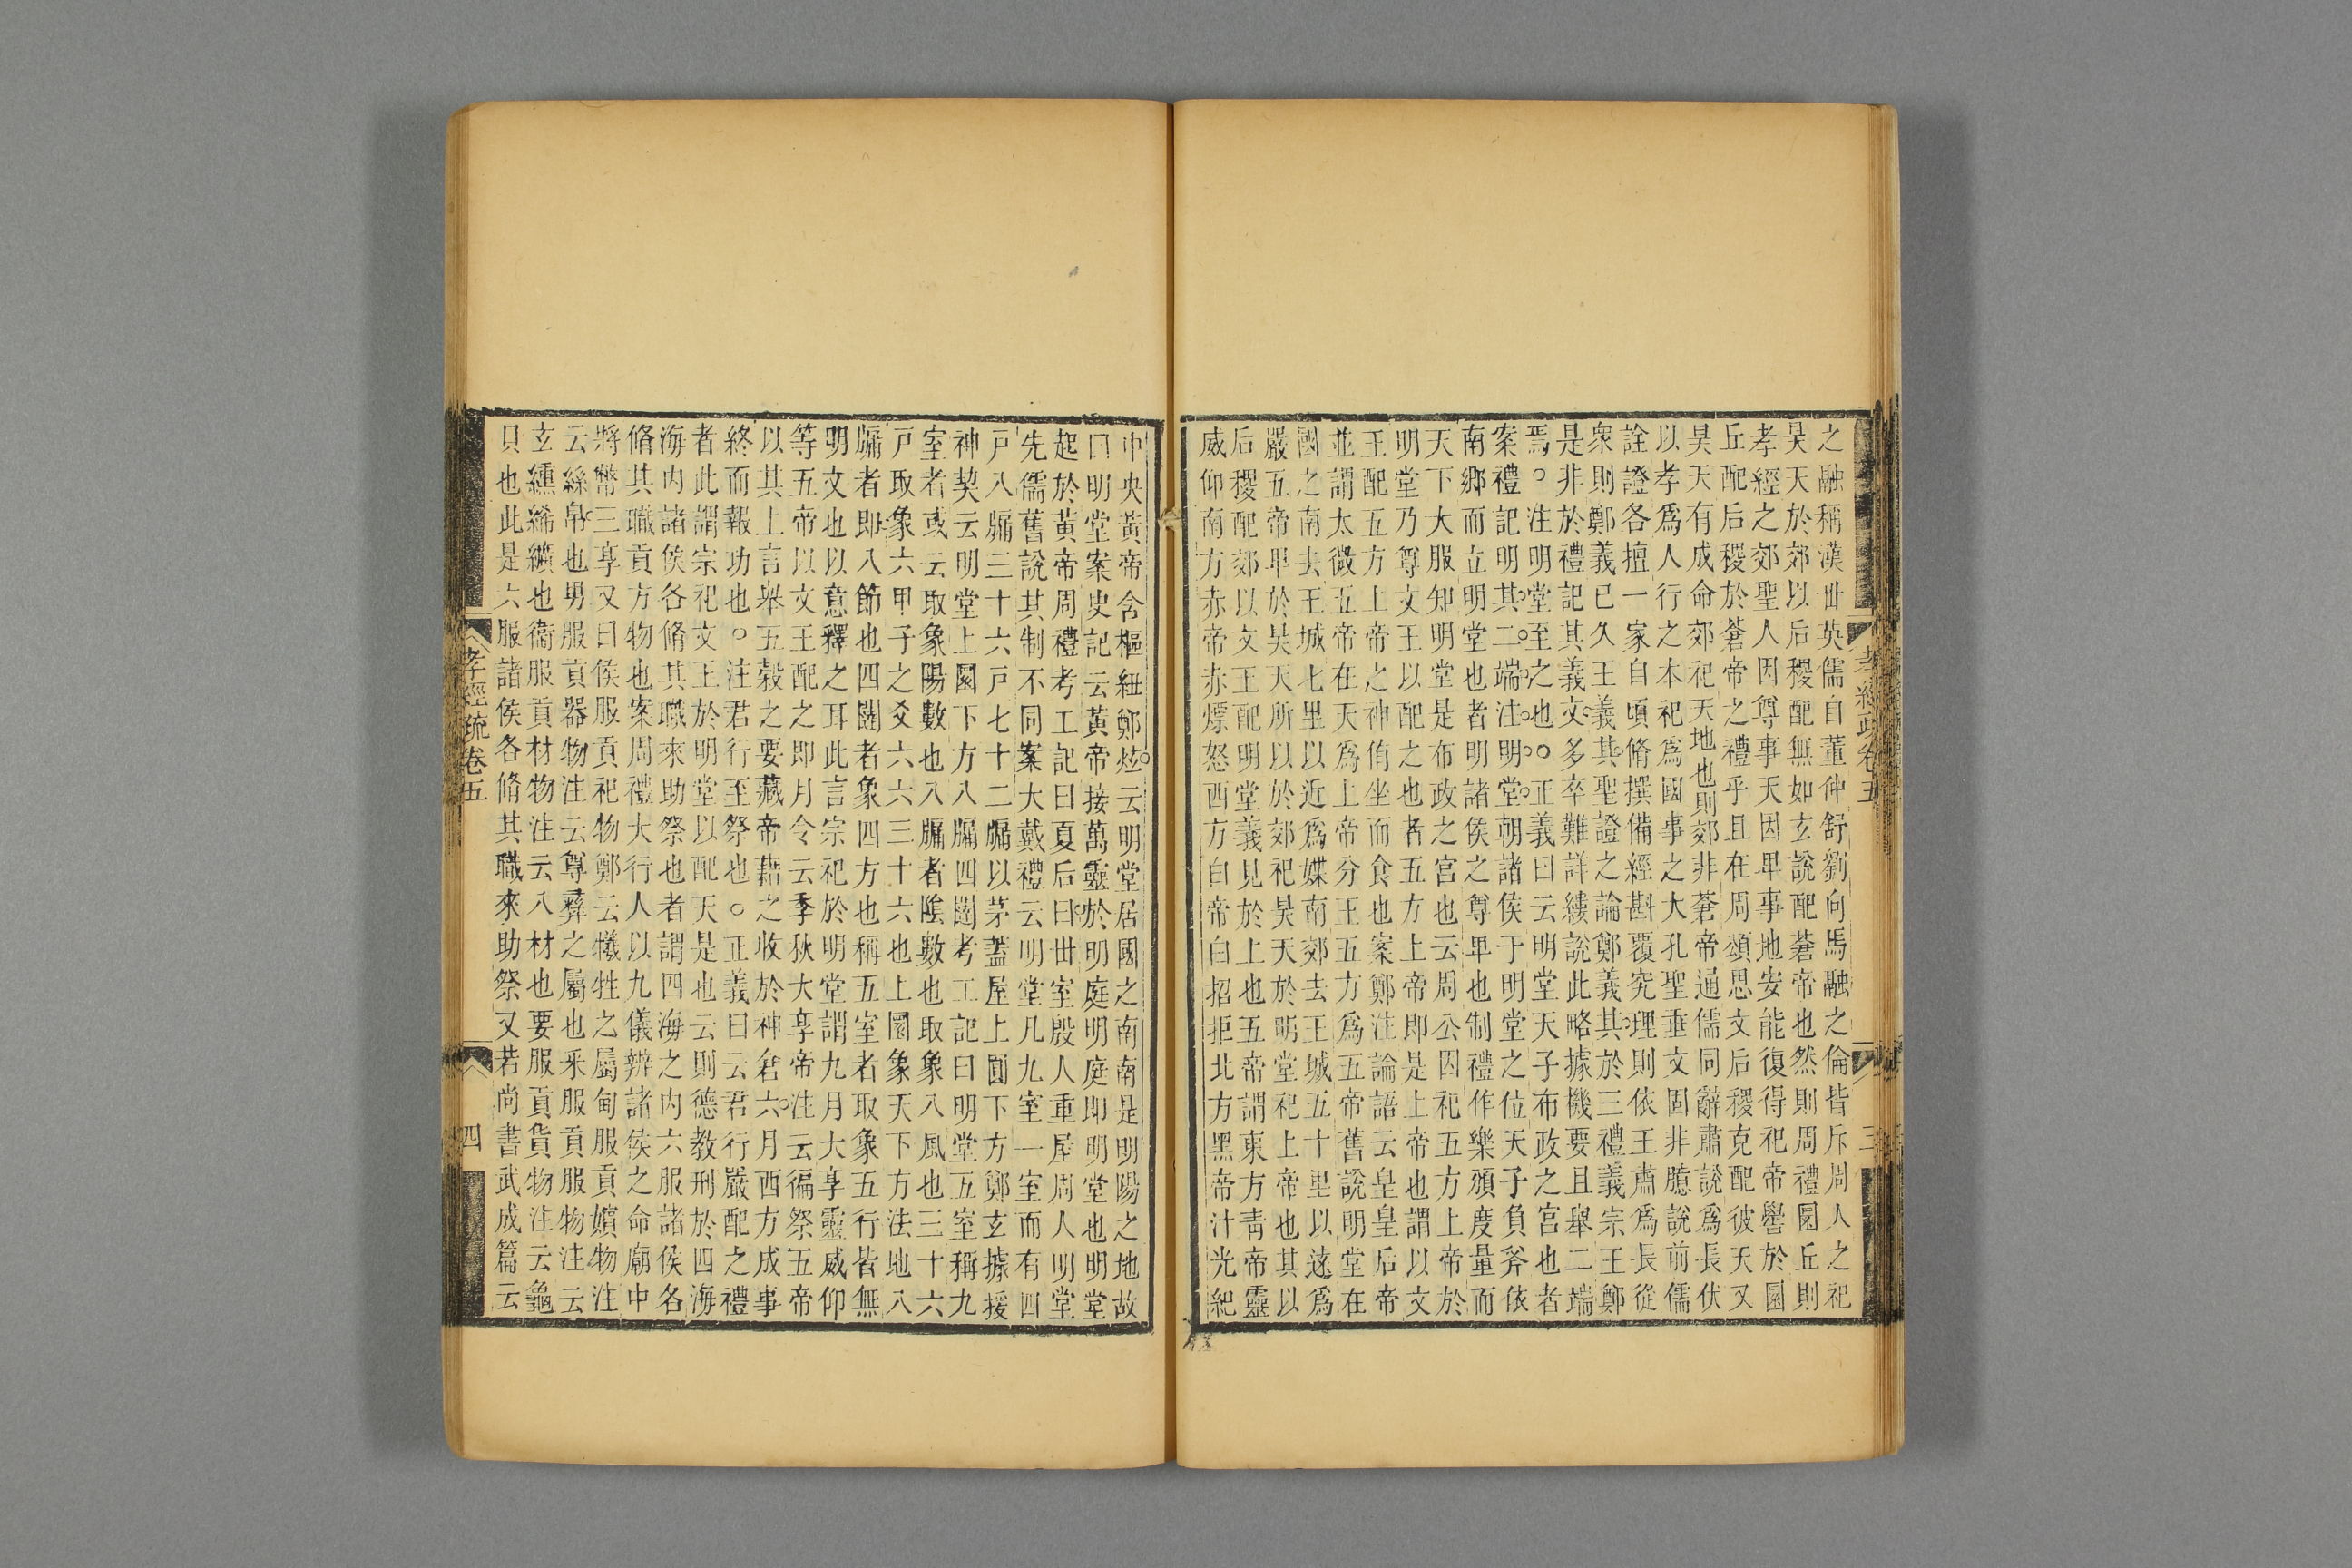 之融稱漢世英儒自董仲舒劉向馬融之倫皆斥周人之祀
昊天於郊以后稷配無如玄說配蒼帝也然則周禮圜丘則
孝經之郊聖人因尊事天因卑事地安能復得祀帝嚳於圜
丘配后稷於蒼帝之禮乎且在周頌思文后稷克配彼天又
昊天有成命郊祀天地也則郊非蒼帝通儒同辭肅說爲長伏
以孝爲人行之本祀爲國事之大孔聖垂文固非臆說前儒
詮證各擅一家自頃脩撰備經斟覆究理則依王肅爲長從
衆則鄭義已久王義其聖證之論鄭義其於三禮義宗王鄭
是非於禮記其義文多卒難詳縷說此略據機要且舉二端
焉○注明堂至之也○正義曰云明堂天子布政之宮也者
案禮記明其二端注明堂朝諸侯于明堂之位天子負斧依
南鄉而立明堂也者明諸侯之尊卑也制禮作樂頒度量而
天下大服知明堂是布政之宮也云周公因祀五方上帝於
明堂乃尊文王以配之也者五方上帝即是上帝也謂以文
王配五方上帝之神侑坐而食也案鄭注論語云皇皇后帝
並謂太微五帝在天爲上帝分王五方爲五帝舊說明堂在
國之南去王城七里以近爲媟南郊去王城五十里以遠爲
嚴五帝卑於昊天所以於郊祀昊天於明堂祀上帝也其以
后稷配郊以文王配明堂義見於上也五帝謂東方青帝靈
威仰南方赤帝赤熛怒西方白帝白招拒北方黑帝汁光紀
孝經疏卷五
三
中央黃帝含樞紐鄭炫云明堂居國之南南是明陽之地故
曰明堂案史記云黃帝接萬靈於明庭明庭即明堂也明堂
起於黃帝周禮考工記曰夏后曰世室殷人重屋周人明堂
先儒舊說其制不同案大戴禮云明堂凡九室一室而有四
戸八牖三十六戸七十二牖以茅蓋屋上圓下方鄭玄據援
神契云明堂上圜下方八牖四闥考工記曰明堂五室稱九
室者或云取象陽數也八牖者陰數也取象八風也三十六
戸取象六甲子之爻六六三十六也上圜象天下方法地八
牖者即八節也四闥者象四方也稱五室者取象五行皆無
明文也以意釋之耳此言宗祀於明堂謂九月大享靈威仰
等五帝以文王配之即月令云季秋大享帝注云徧祭五帝
以其上言舉五穀之要藏帝藉之收於神倉六月西方成事
終而報功也○注君行至祭也○正義曰云君行嚴配之禮
者此謂宗祀文王於明堂以配天是也云則德教刑於四海
海內諸侯各脩其職來助祭也者謂四海之內六服諸侯各
脩其職貢方物也案周禮大行人以九儀辨諸侯之命廟中
將幣三享又曰侯服貢祀物鄭云犧牲之屬甸服貢嬪物注
云絲帛也男服貢器物注云尊彝之屬也采服貢服物注云
玄纁絺纊也衞服貢材物注云八材也要服貢貨物注云龜
貝也此是六服諸侯各脩其職來助祭又若尚書武成篇云
孝經疏卷五
四